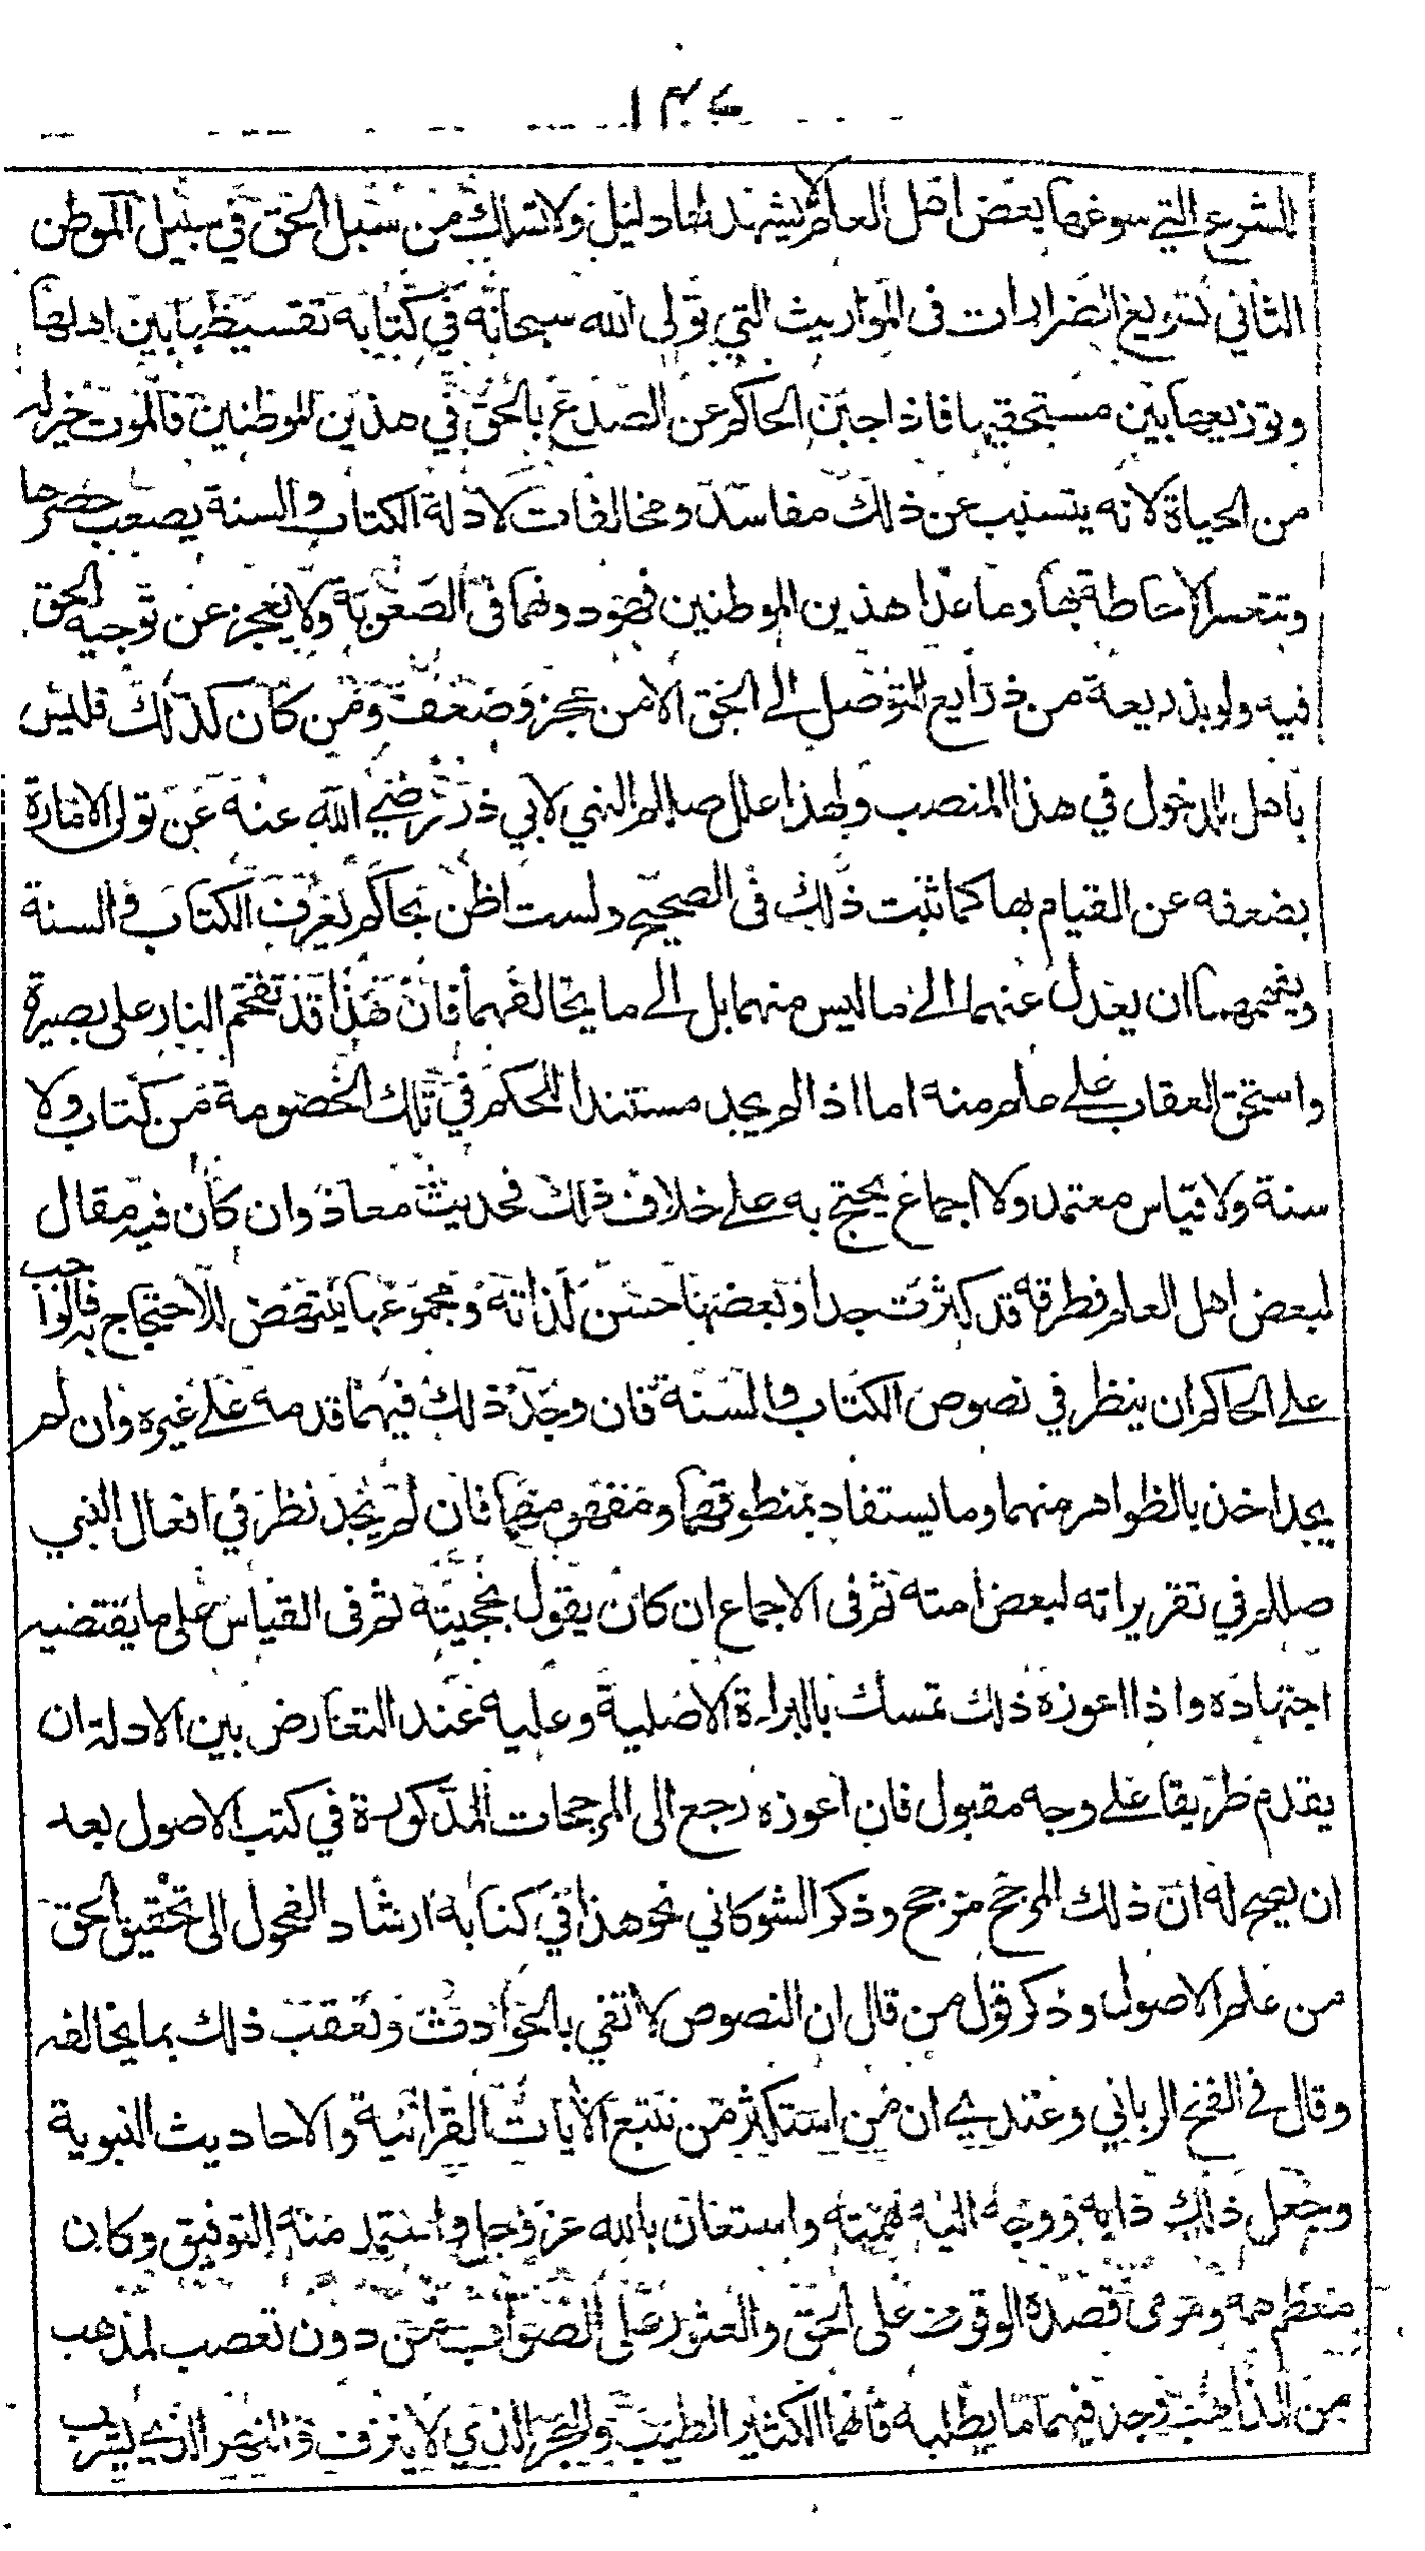 ١٣٧
للشرع التي سوغها بعض اهل العلم لا يشهد لها دليل ولا تسلك من سبل الحق في سبيل الموطن
الثاني تسويغ الضرارات في المواريث التي تولى الله سبحانه في كتابه تقسيطها بين اهلها
وتوزيعها بين مستحقيها فاذا جبن الحاكم عن الصدع بالحق في هذين الموطنين فالموت خير له
من الحياة لانه يتسبب عن ذلك مفاسد ومخالفات لادلة الكتاب والسنة يصعب حصرها
وتتعسر الاحاطة بها وما عدا هذين الموطنين فهو دونهما في الصعوبة ولا يعجز عن توجيه الحق
فيه ولو بذريعة من ذرايع التوصل الى الحق الا من عجز وضعف ومن كان كذلك فليس
باهل للدخول في هذا المنصب ولهذا علل صللم النهي لابي ذر رضي الله عنه عن تولى الامارة
بضعفه عن القيام بها كما ثبت ذلك في الصحيح ولست اظن بحاكم يعرف الكتاب والسنة
ويفهمهما ان يعدل عنهما الى ما ليس منهما بل الى ما يخالفهما فان هذا قد تقحم النار على بصيرة
واستحق العقاب على علم منه اما اذا لم يجد مستندا للحكم في تلك الخصومة من كتاب ولا
سنة ولا قياس معتمد ولا اجماع يحتج به على خلاف ذلك فحديث معاذ وان كان فيه مقال
لبعض اهل العلم فطرقه قد كثرت جدا وبعضها حسن لذاته ومجموعها ينتهض للاحتجاج به فالواجب
على الحاكم ان ينظر في نصوص الكتاب والسنة فان وجد ذلك فيهما قدمه على غيره وان لم
يجد اخذ بالظواهر منهما وما يستفاد بمنطوقهما ومفهومهما فان لم يجد نظر في افعال النبي
صللم في تقريراته لبعض امته ثم في الاجماع ان كان يقول بحجيته ثم في القياس على ما يقتضيه
اجتهاده واذا اعوزه ذلك تمسك بالبراءة الاصلية وعليه عند التعارض بين الادلة ان
يقدم طريقا على وجه مقبول فان اعوزه رجع الى المرجحات المذكورة في كتب الاصول بعد
ان يصح له ان ذلك المرجح مرجح وذكر الشوكاني نحو هذا في كتابه ارشاد الفحول الى تحقيق الحق
من علم الاصول وذكر قول من قال ان النصوص لا تفي بالحوادث وتعقب ذلك بما يخالفه
وقال في الفتح الرباني وعندي ان من استكثر من تتبع الآيات القرانية والاحاديث النبوية
وجعل ذلك دابه ووجه اليه همته واستعان بالله عز وجل واستمد منه التوفيق وكان
معظم همه ومرمى قصده الوقوف على الحق والعثور على الصواب من دون تعصب لمذهب
من المذاهب وجد فيهما ما يطلبه فانهما الكثير الطيب والبحر الذي لا ينزف والنهر الذي يشرب